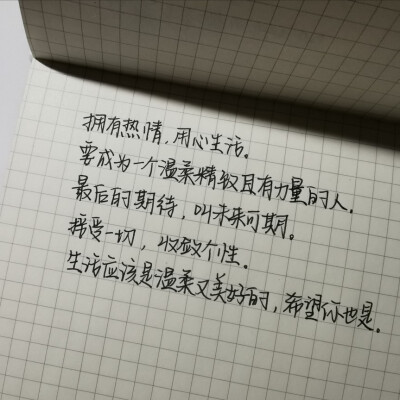 拥有热情,用心生活。
要成为一个温柔精致且有力量的人。
最后的期待,叫未来可期。
接受一切,收敛个性。
生活应该是温柔又美好的,希望你也是。